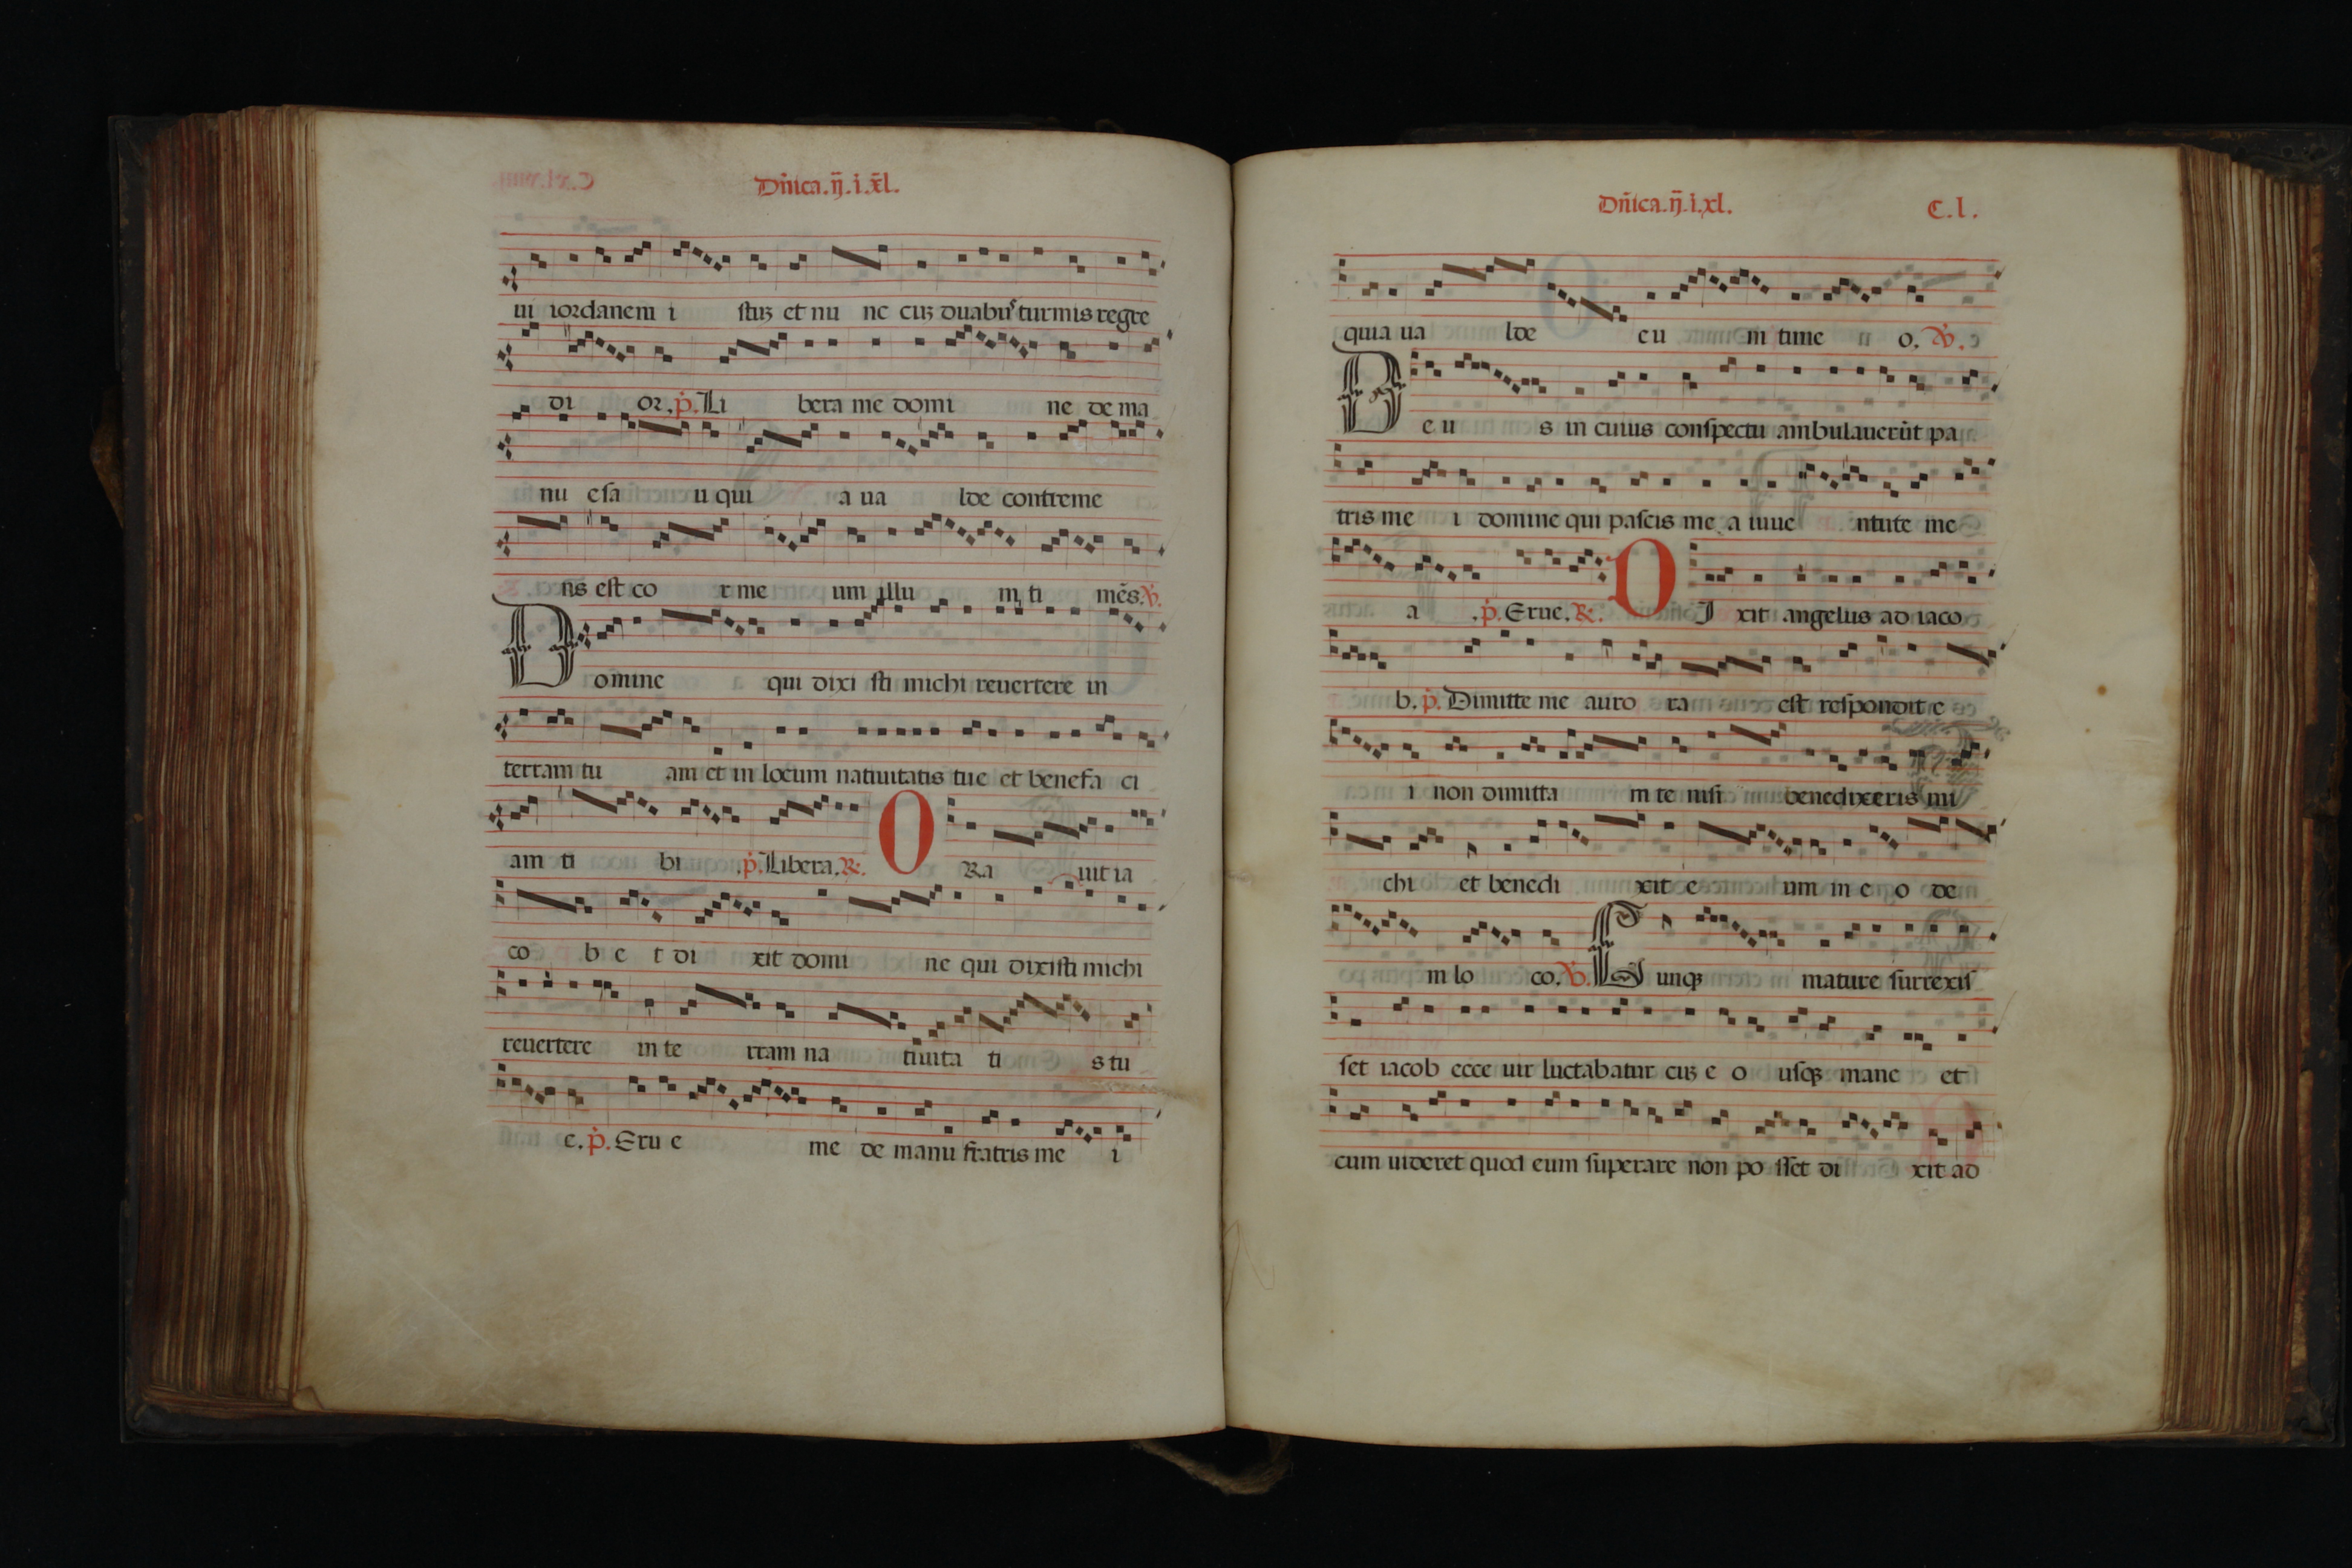 Dn̄ica.ij̄.i.x̄l.
ui iordanem i stuꝫ et nu nc cuꝫ duabuꝰ turmis regre
di or. p̄. Li bera me domi ne de ma
nu esa u qui a ua lde contreme
ns est co r me um illu m ti mēs. ℣.
Domine qui dixi sti michi reuertere in
terram tu am et in locum natiuitatis tue et benefa ci
am ti bi .p̄. Libera. ℞. O Ra uit ia
co b e t di xit domi ne qui dixisti michi
reuertere in te rram na tiuita ti s tu
e. p̄. Eru e me de manu fratris me i
Dn̄ica.ij̄.i.xl. C.l.
quia ua lde eu m time o. ℣.
De u s in cuius conspectu ambulauerūt pa
tris me i domine qui pascis me a iuue ntute me
a .p̄. Erue. ℞. D I xit angelus ad iaco
b. p̄. Dimitte me auro ra est respondit e
i non dimitta m te nisi benedixeris mi
chi et benedi xit e um in e o de
m lo co. ℣. Cunqꝫ mature surrexis
set iacob ecce uir luctabatur cuꝫ e o usqꝫ mane et
cum uideret quod eum superare non po sset di xit ad